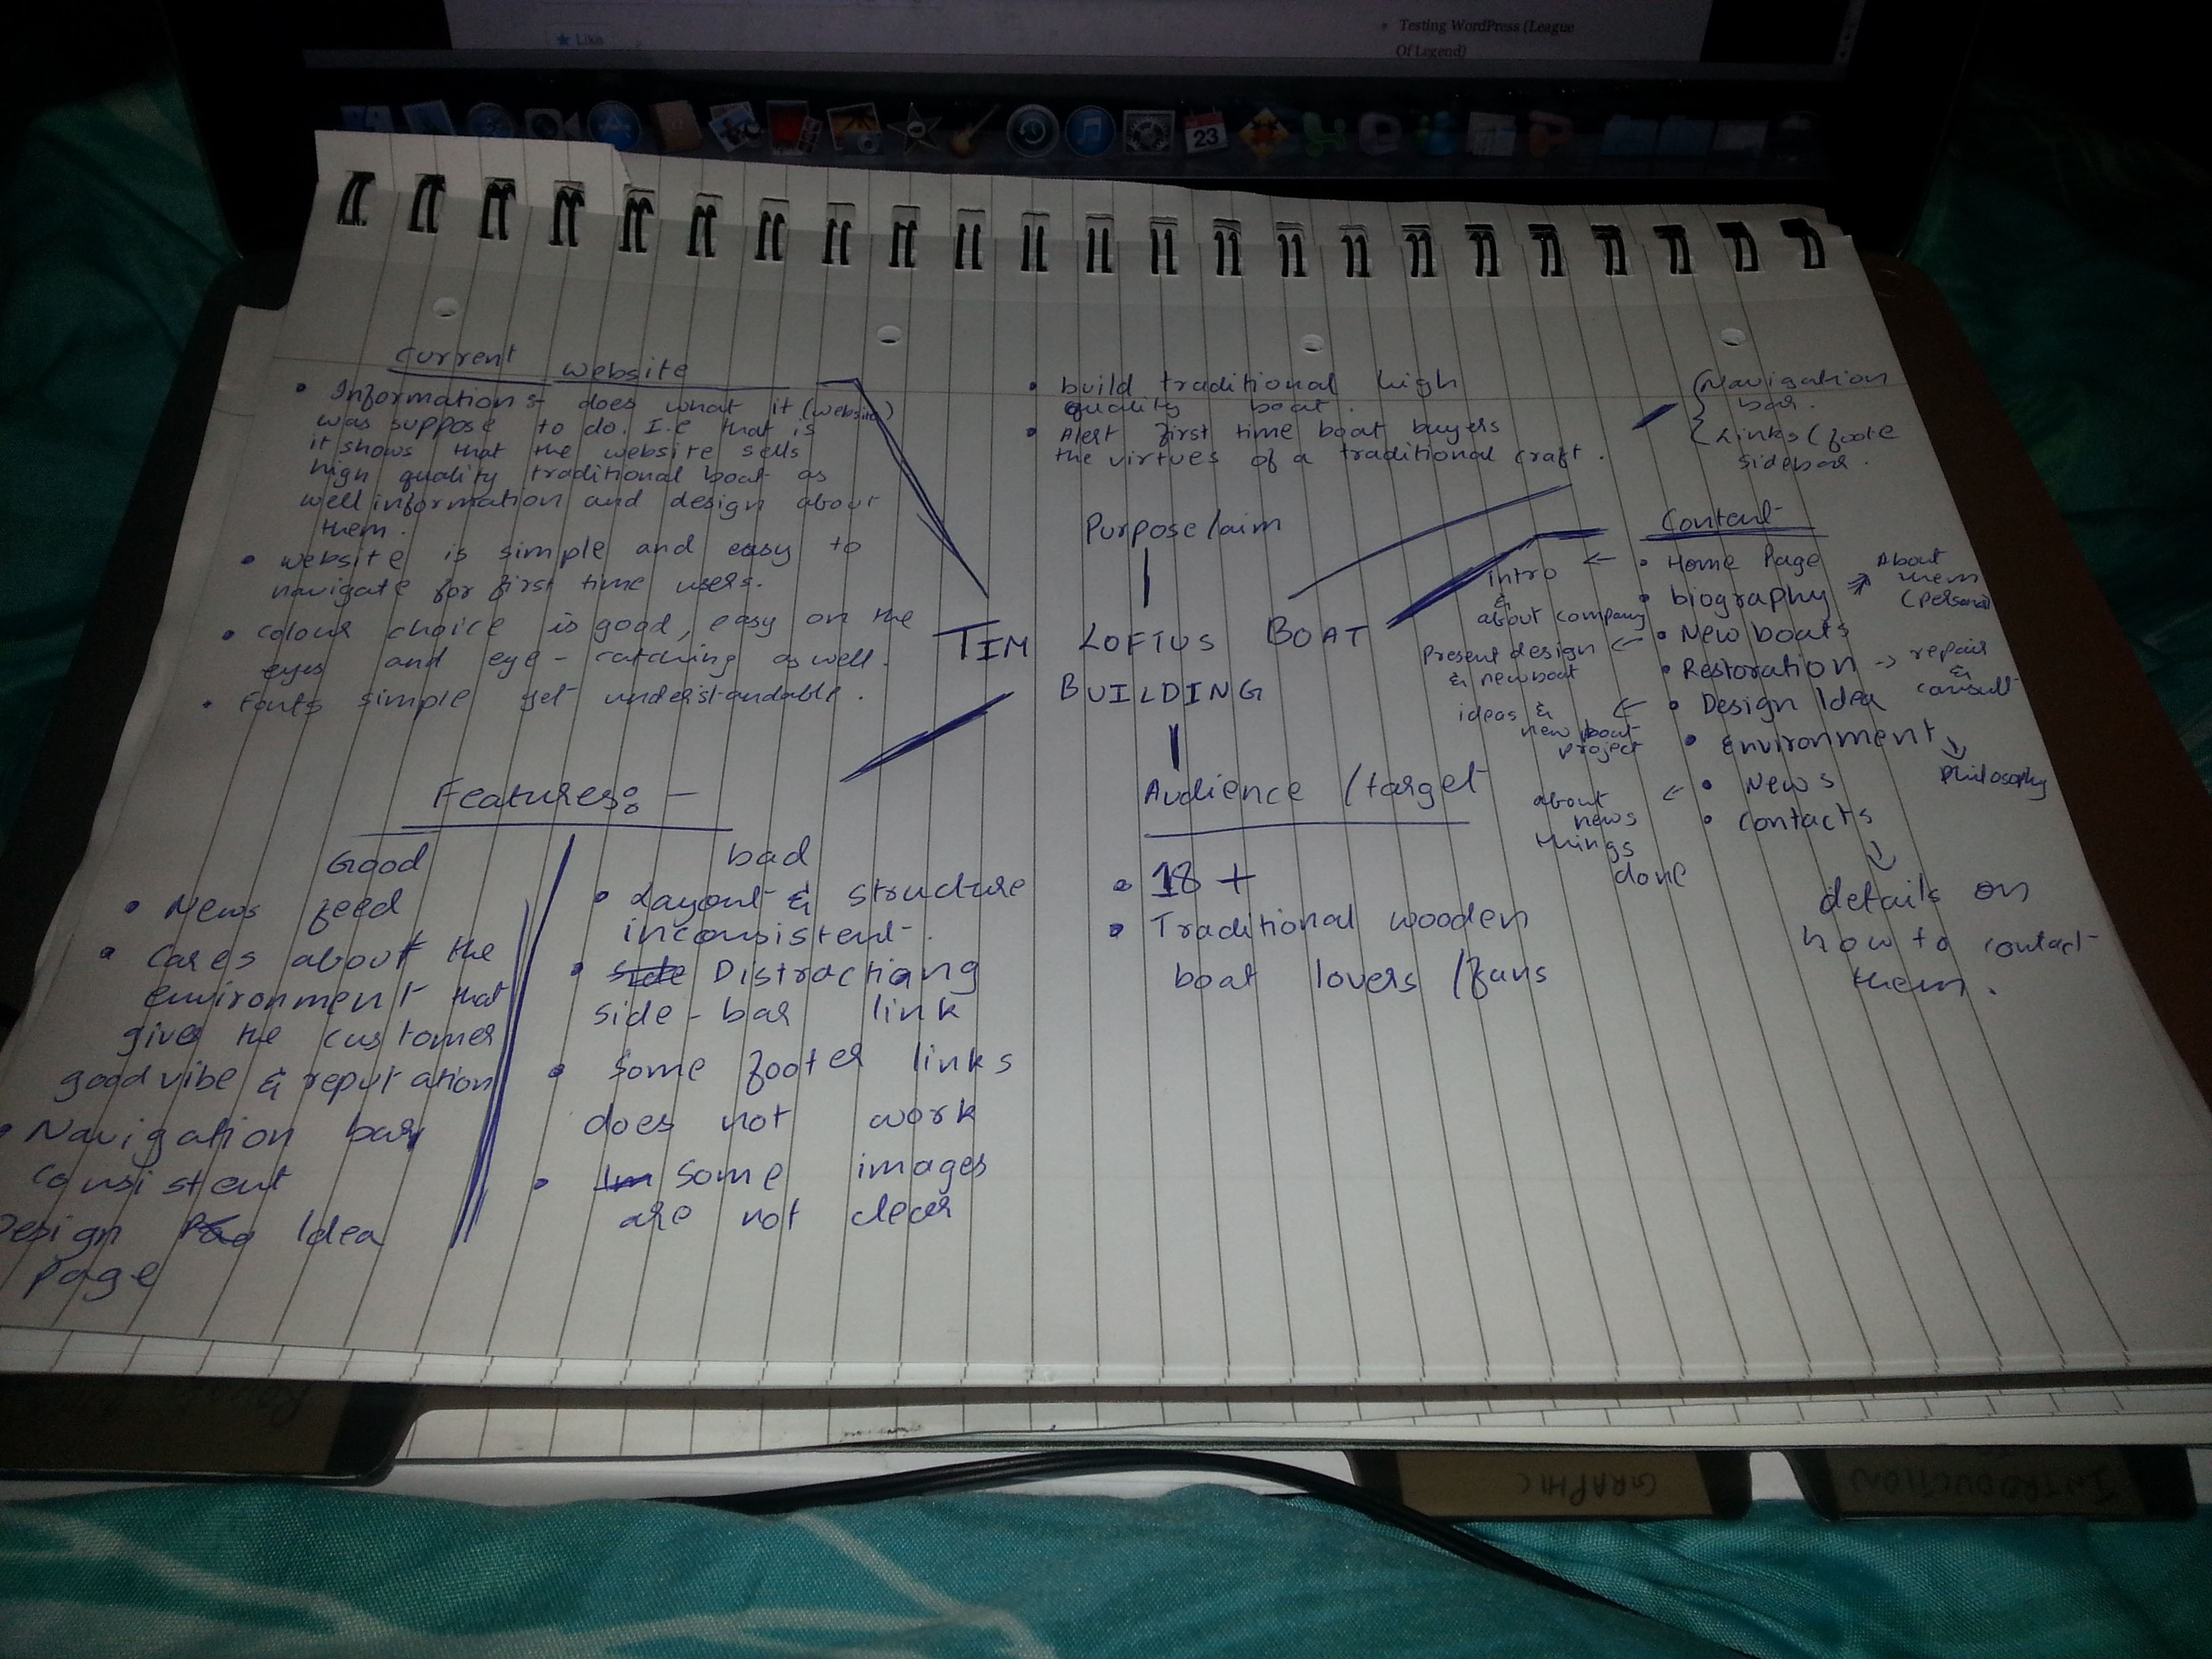 Like
Testing WordPress (League
Of Legend)
23
Current Website
• Informations- does what it (website)
was suppose to do. I.e that is
it shows that the website sells
high quality traditional boat as
well information and design about
them.
• website is simple and easy to
navigate for first time users.
• colour choice is good, easy on the
eyes and eye-catching as well.
• Fonts simple yet understandable.
• build traditional high
quality boat.
• Alert first time boat buyers
the virtues of a traditional craft.
Purpose/aim
Navigation
bar.
Links (foote
sidebar.
TIM LOFTUS BOAT
BUILDING
Content
• Home Page
intro
&
about company
• biography
About
them
(personal
• New boats
Present design
& new boat
• Restoration -> repair
&
consult
• Design Idea
ideas &
new boat
project
• Environment
Philosophy
• News
about
news
things
done
• contacts
details on
how to contact
them.
Features: -
Good
• News feed
• cares about the
environment that
gives the customer
good vibe & reputation
• Navigation bar
consistent
Design Idea
page
bad
• Layout & structure
inconsistent.
• side Distractiang
side-bar link
• Some footer links
does not work
• Im Some images
are not clear
Audience /target
• 18+
• Traditional wooden
boat lovers /fans
GRAPHIC
INTRODUCTION